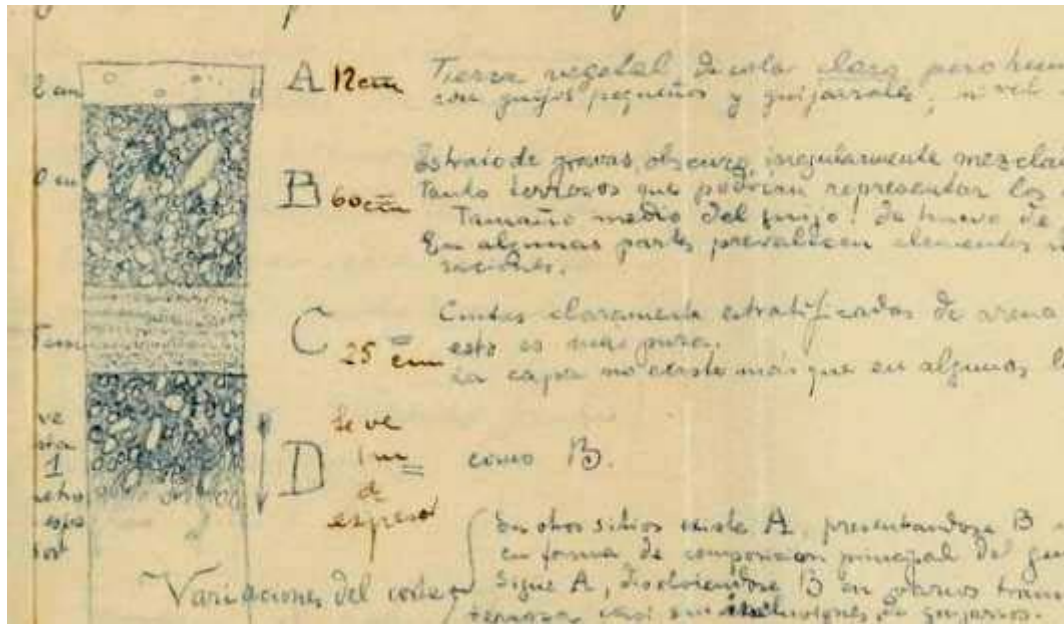 A 12 cm Tierra vegetal, de color claro pero hum
con guijos pequeños y guijarrales, nivel
B 60 cm Estrato de gravas, obscuro, irregularmente mezcla
tanto terrosos que podrían representar los
Tamaño medio del guijo: de huevo de
En algunas partes prevalecen elementos
raciones.
C 25 cm Cintas claramente estratificadas de arena
esto es muy pura.
La capa no existe más que en algunos l
D Se ve 1 m de espesor como B.
En otros sitios existe A, presentandose B
en forma de composicion principal del
Sigue A, disolviendose B en varios tram
terrosa, casi sin de guijarros.
Variaciones del corte